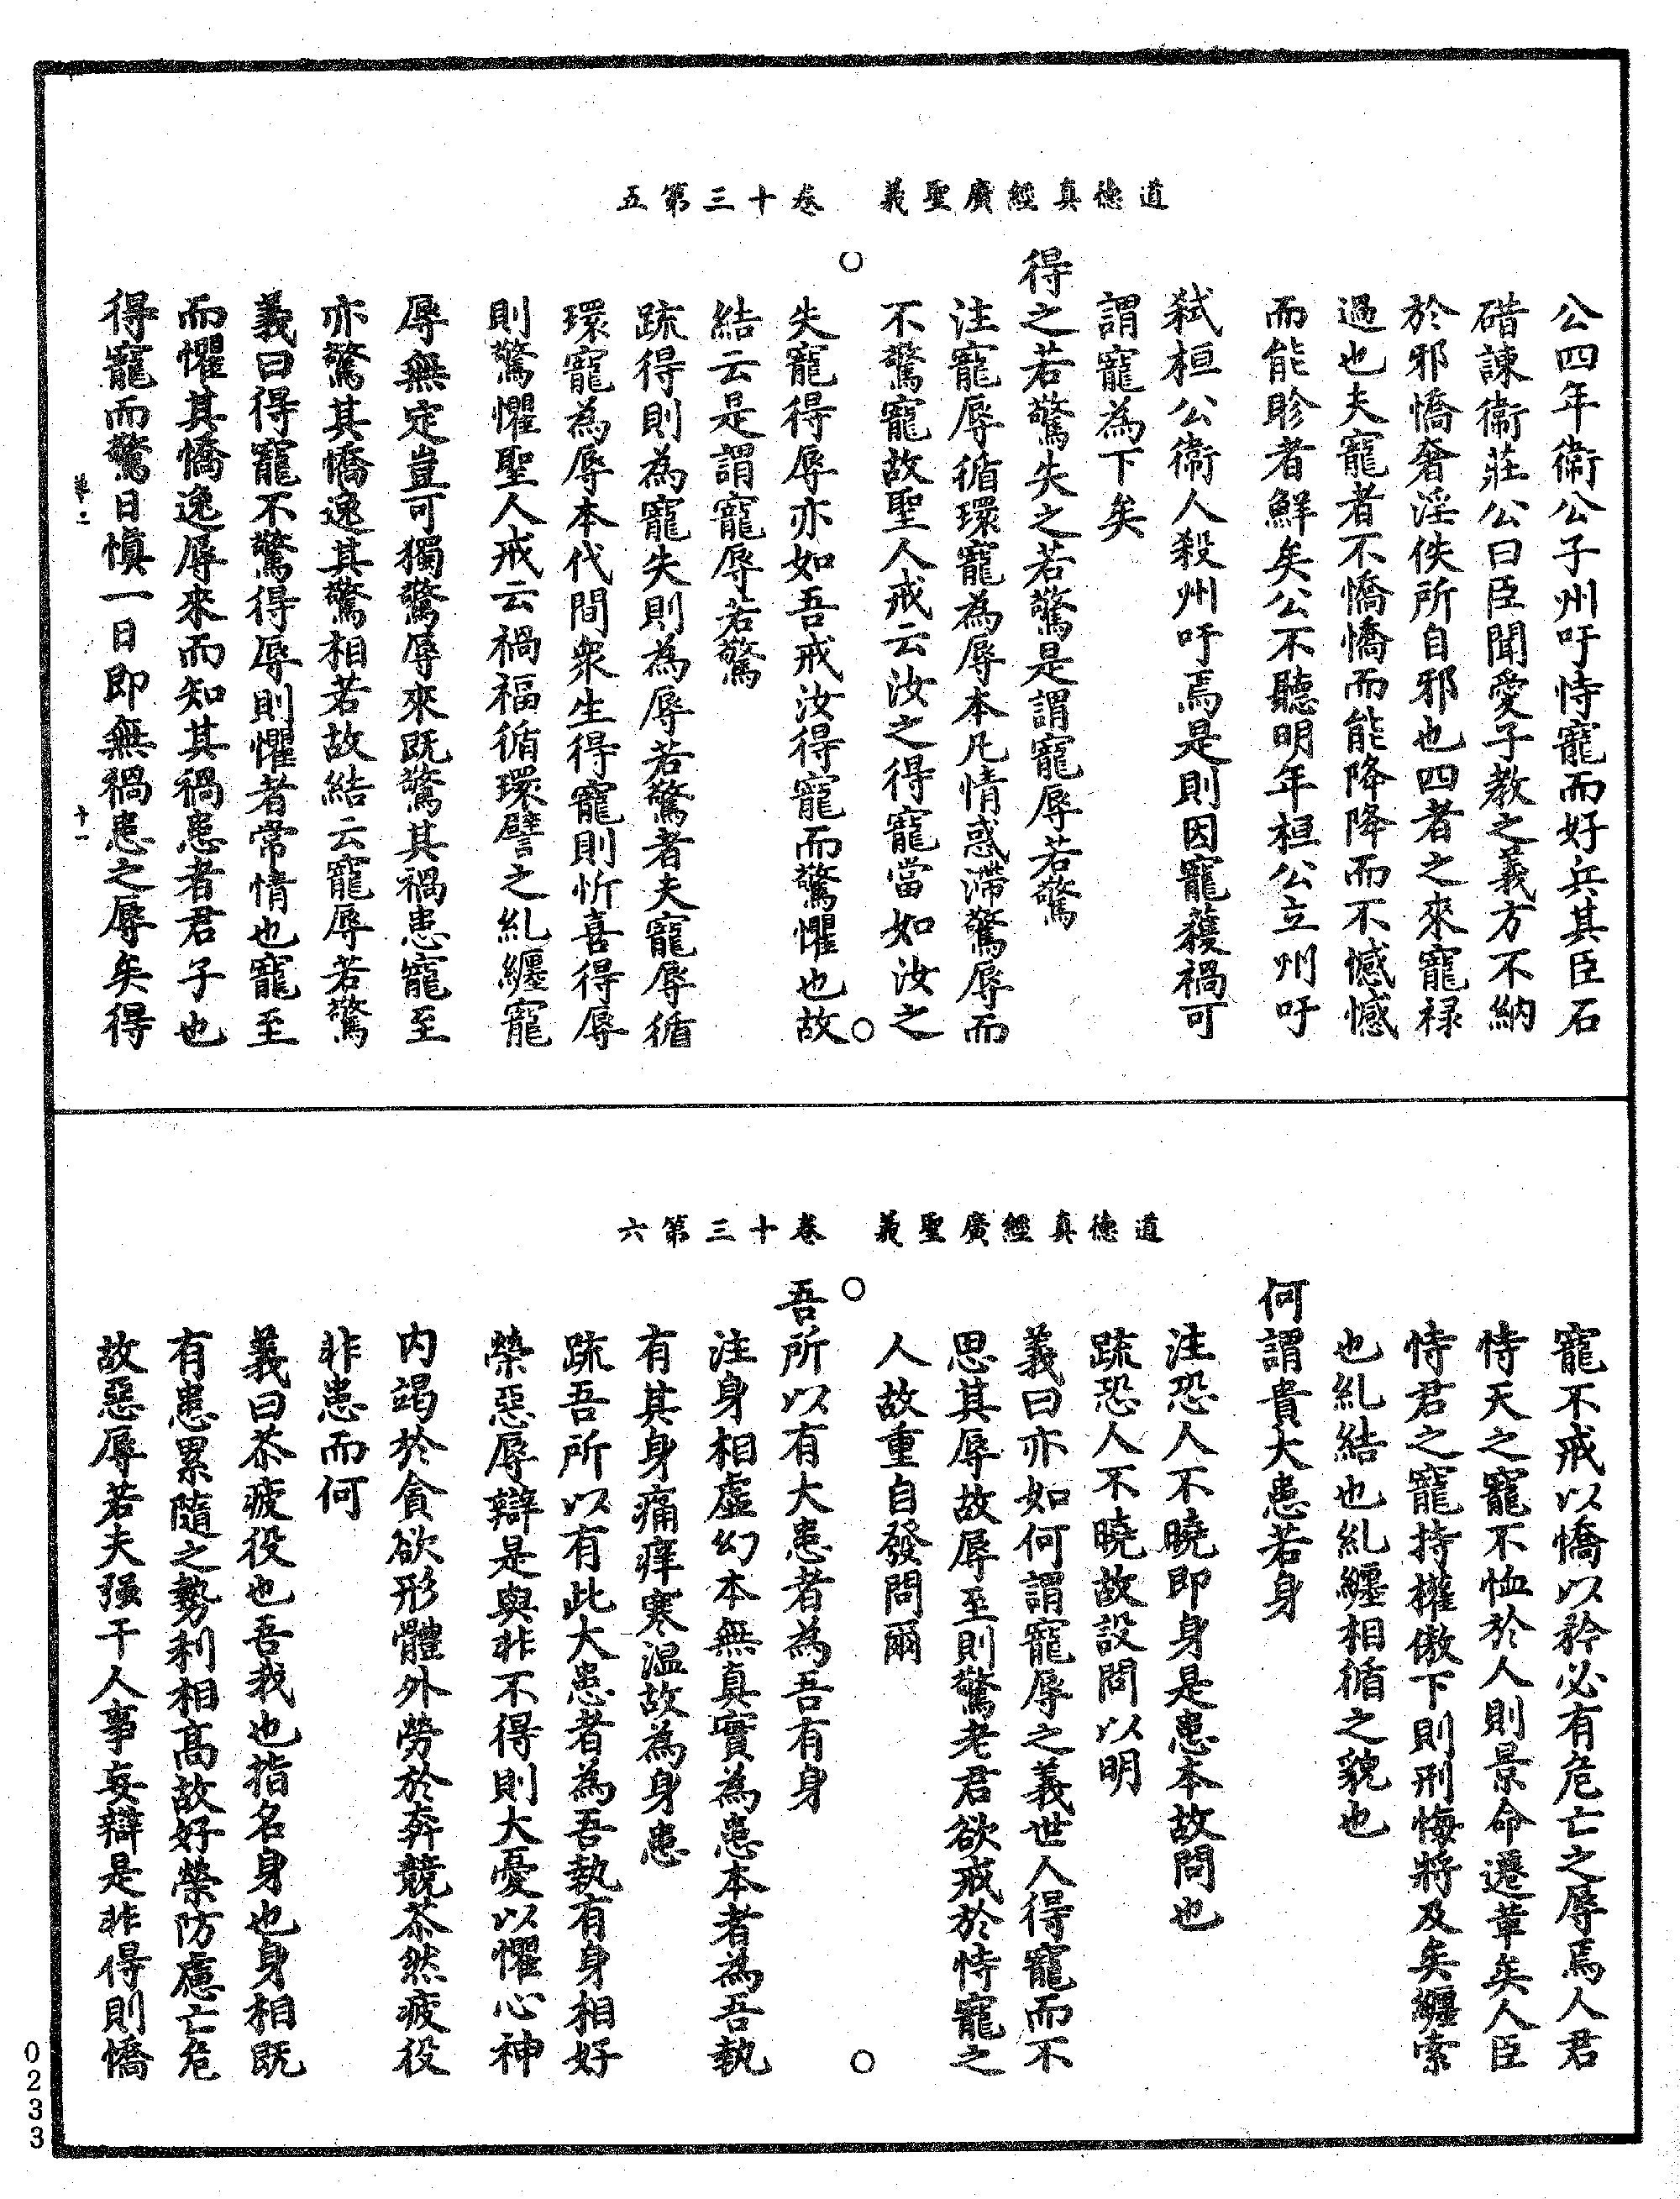 道德真經廣聖義　卷十三第五
公四年衞公子州吁恃寵而好兵其臣石
碏諫衞莊公曰臣聞愛子教之義方不納
於邪憍奢淫佚所自邪也四者之來寵祿
過也夫寵者不憍憍而能降降而不憾憾
而能眕者鮮矣公不聽明年桓公立州吁
弒桓公衞人殺州吁焉是則因寵獲禍可
謂寵為下矣
得之若驚失之若驚是謂寵辱若驚
注寵辱循環寵為辱本凡情惑滯驚辱而
不驚寵故聖人戒云汝之得寵當如汝之
失寵得辱亦如吾戒汝得寵而驚懼也故
結云是謂寵辱若驚
疏得則為寵失則為辱若驚者夫寵辱循
環寵為辱本代間衆生得寵則忻喜得辱
則驚懼聖人戒云禍福循環譬之糺纏寵
辱無定豈可獨驚辱來既驚其禍患寵至
亦驚其憍逸其驚相若故結云寵辱若驚
義曰得寵不驚得辱則懼者常情也寵至
而懼其憍逸辱來而知其禍患者君子也
得寵而驚日慎一日即無禍患之辱矣得
十一
道德真經廣聖義　卷十三第六
寵不戒以憍以矜必有危亡之辱焉人君
恃天之寵不恤於人則景命遷革矣人臣
恃君之寵持權傲下則刑悔將及矣纏索
也糺結也糺纏相循之貌也
何謂貴大患若身
注恐人不曉即身是患本故問也
疏恐人不曉故設問以明
義曰亦如何謂寵辱之義世人得寵而不
思其辱故辱至則驚老君欲戒於恃寵之
人故重自發問爾
吾所以有大患者為吾有身
注身相虛幻本無真實為患本者為吾執
有其身痛痒寒溫故為身患
疏吾所以有此大患者為吾執有身相好
榮惡辱辯是與非不得則大憂以懼心神
内竭於貪欲形體外勞於奔競苶然疲役
非患而何
義曰苶疲役也吾我也指名身也身相既
有患累隨之勢利相高故好榮防慮亡危
故惡辱若夫强干人事妄辯是非得則憍
0233